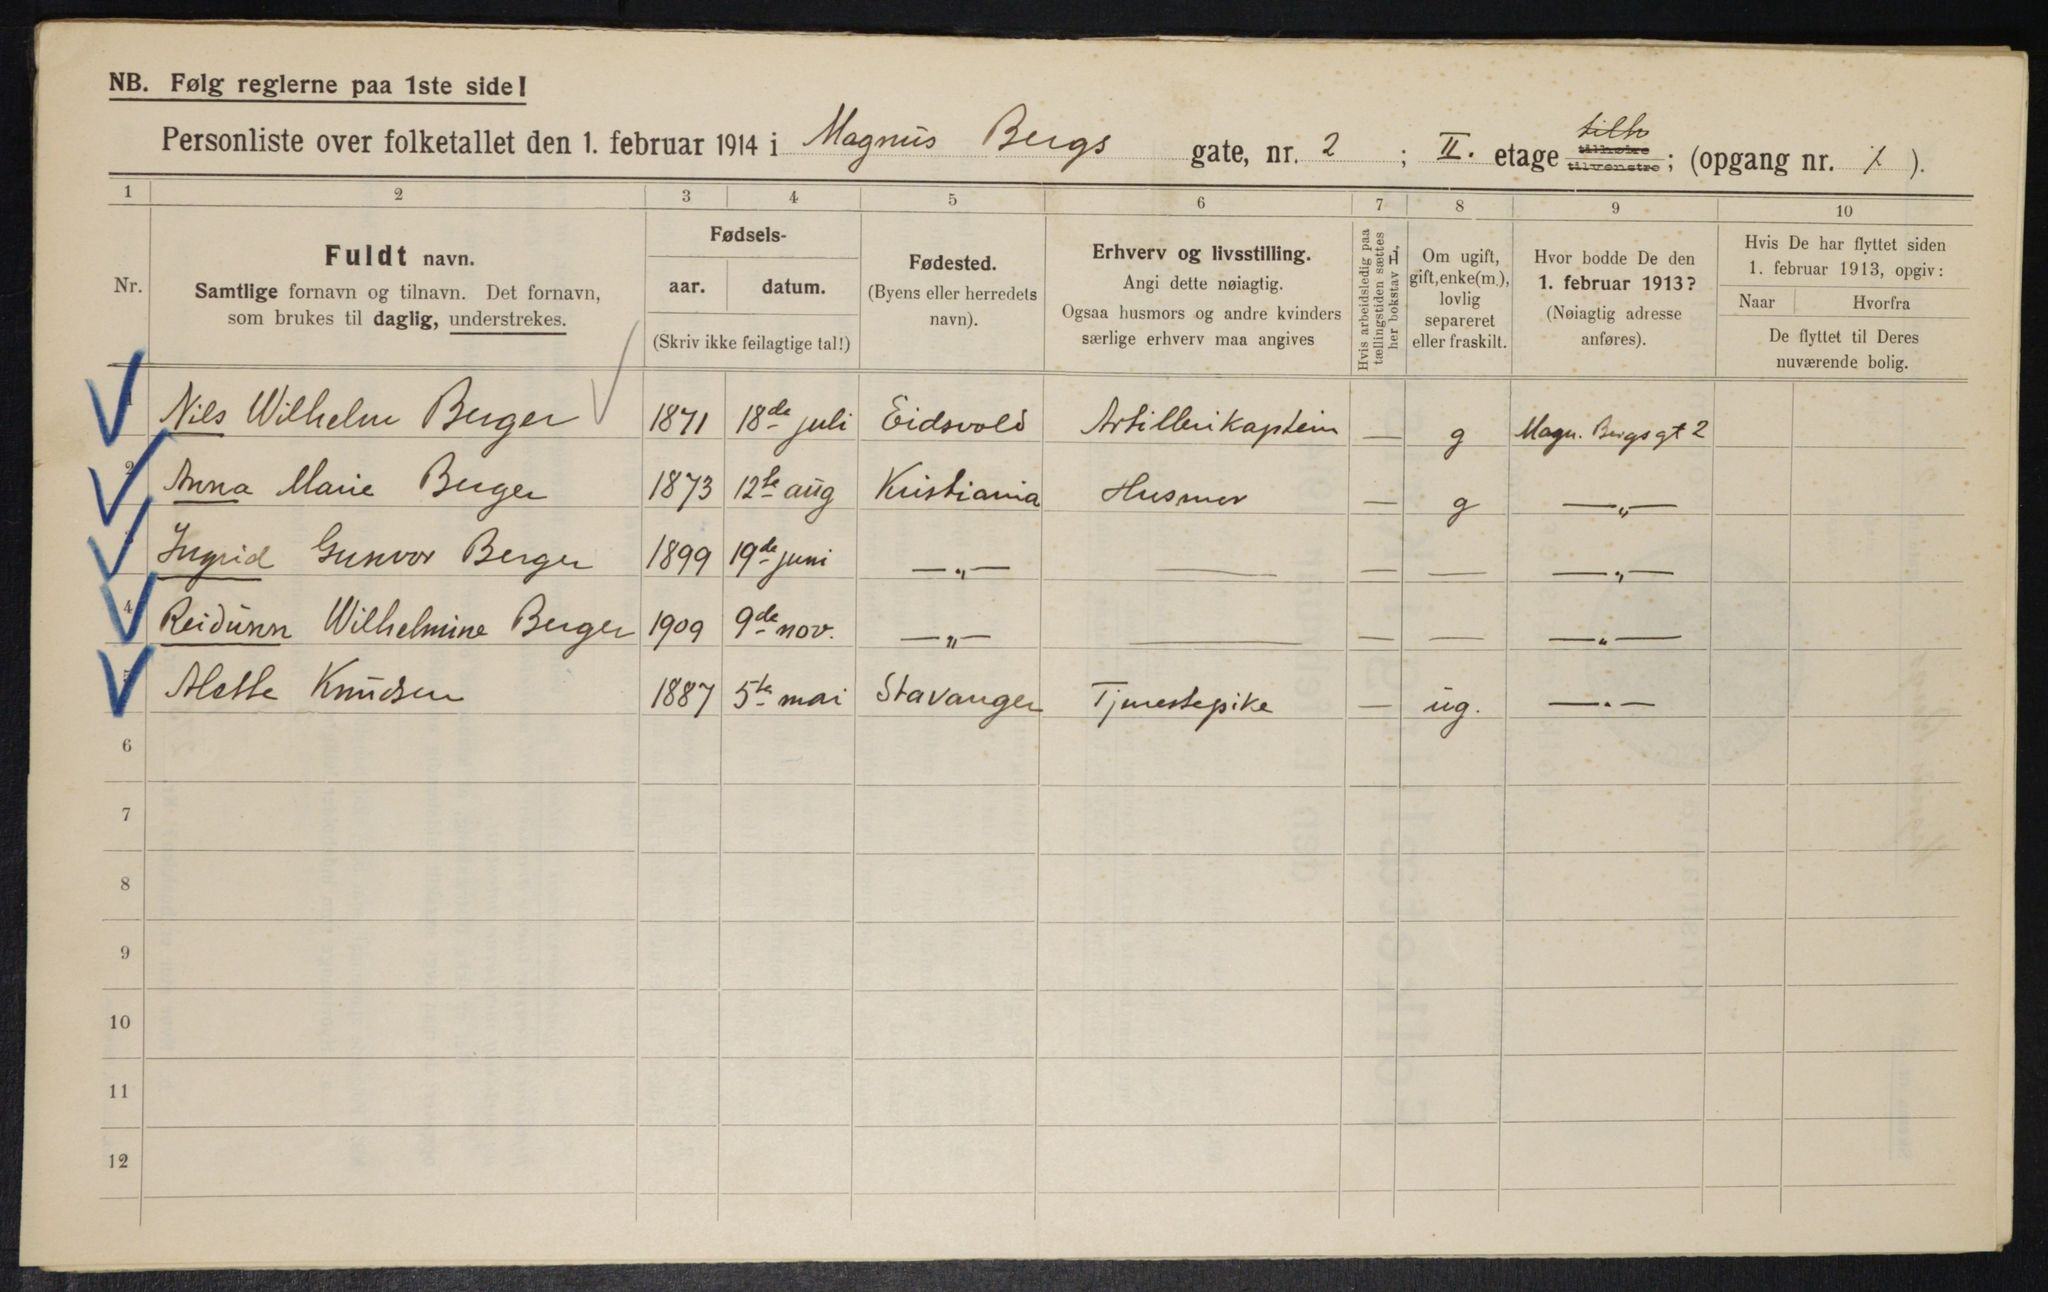 NB. Følg reglerne paa 1ste side!
Personliste over folketallet den 1. februar 1914 i Magnus Bergs gate, nr. 2 ; II. etage tilh tilhøire tilvenstre ; (opgang nr. 1 ).
1 2 3 4 5 6 7 8 9 10
Nr.
Fuldt navn.
Samtlige fornavn og tilnavn. Det fornavn,
som brukes til daglig, understrekes.
Fødsels-
aar. datum.
(Skriv ikke feilagtige tal!)
Fødested.
(Byens eller herredets
navn).
Erhverv og livsstilling.
Angi dette nøiagtig.
Ogsaa husmors og andre kvinders
særlige erhverv maa angives
Hvis arbeidsledig paa
tællingstiden sættes
her bokstav L,
Om ugift,
gift, enke(m.),
lovlig
separeret
eller fraskilt.
Hvor bodde De den
1. februar 1913?
(Nøiagtig adresse
anføres).
Hvis De har flyttet siden
1. februar 1913, opgiv:
Naar Hvorfra
De flyttet til Deres
nuværende bolig.
1 Nils Wilhelm Berger 1871 18de juli Eidsvold Artillerikaptein — g Magn. Bergs gt 2
2 Anna Marie Berger 1873 12te aug Kristiania Husmor — g —„—
3 Ingrid Gunvor Berger 1899 19de juni —„— — — — —„—
4 Reidunn Wilhelmine Berger 1909 9de nov. —„— — — — —„—
5 Alette Knudsen 1887 5te mai Stavanger Tjenestepike — ug. —„—
6
7
8
9
10
11
12